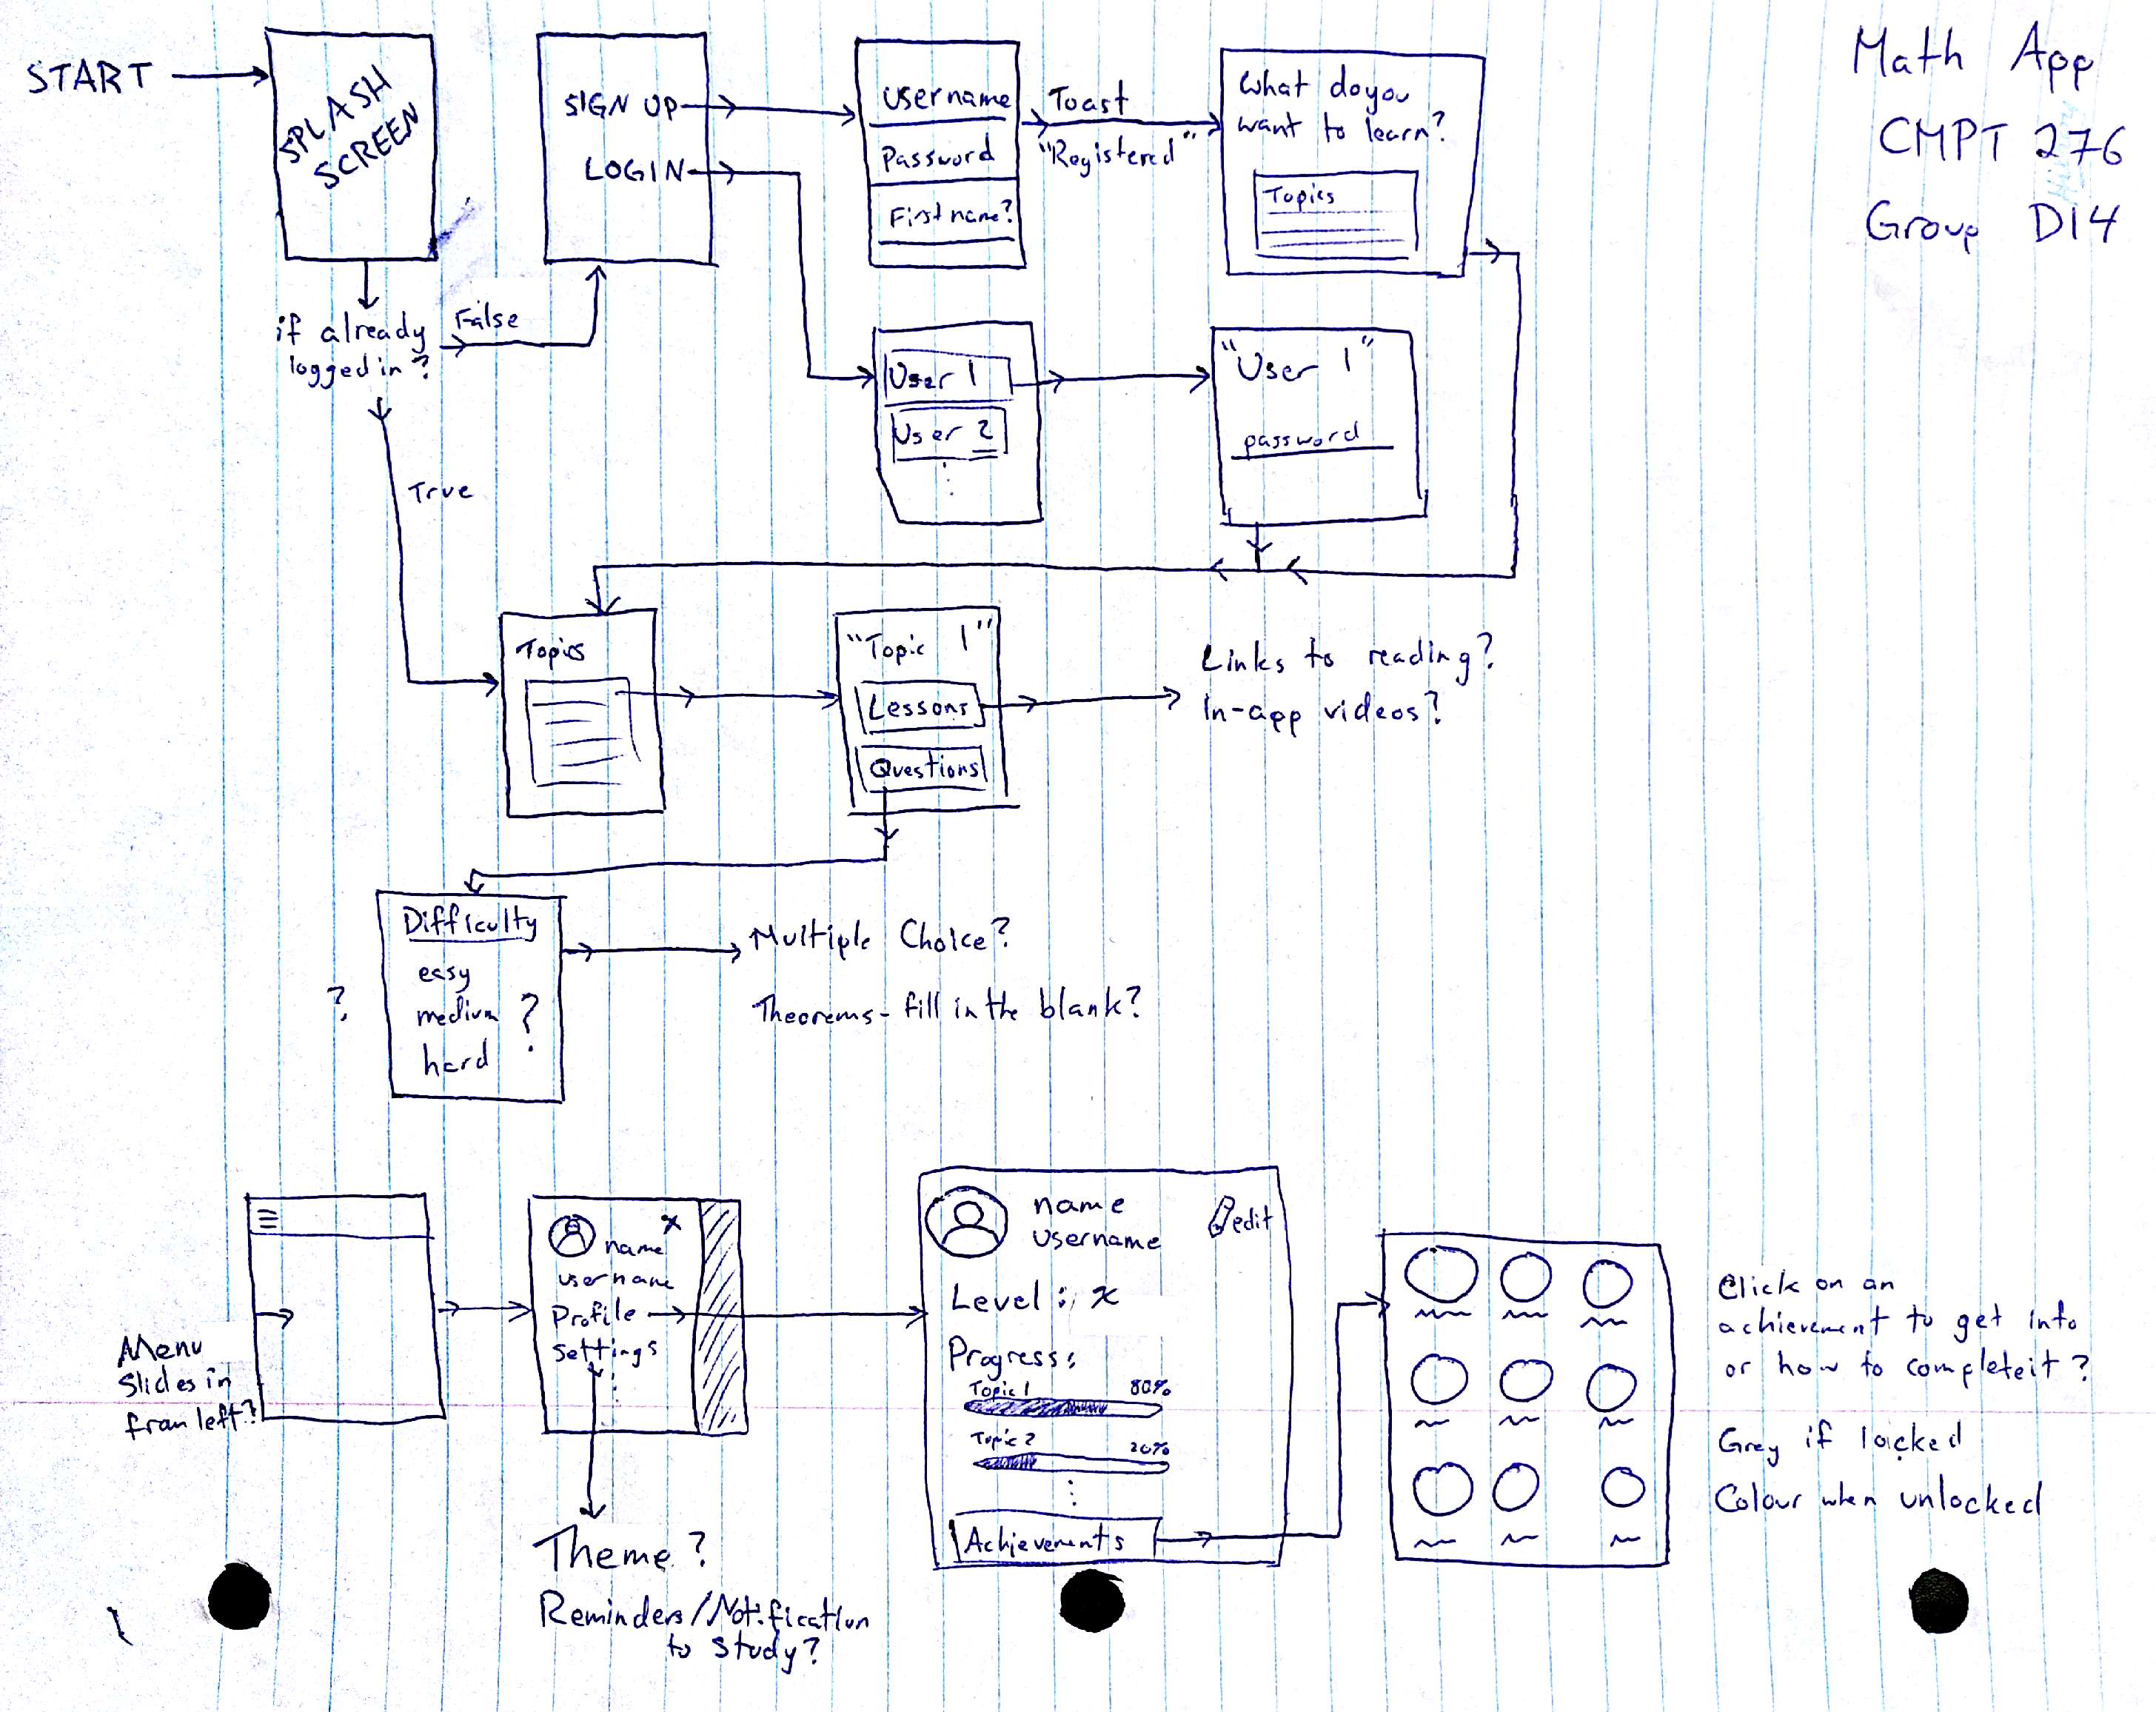 Math App
CMPT 276
Group D14
START
SPLASH
SCREEN
SIGN UP
LOGIN
username
Password
First name?
Toast
"Registered"
What do you
want to learn?
Topics
if already
logged in?
False
True
User 1
User 2
"User 1"
password
Topics
"Topic 1"
Lessons
Questions
Links to reading?
In-app videos?
Difficulty
easy
medium
hard
?
?
Multiple Choice?
Theorems - fill in the blank?
Menu
Slides in
from left?
x
name
username
Profile
Settings
Theme?
Reminders/Notification
to study?
name
username
edit
Level: x
Progress:
Topic 1 80%
Topic 2 20%
Achievements
Click on an
achievement to get info
or how to complete it?
Grey if locked
Colour when unlocked